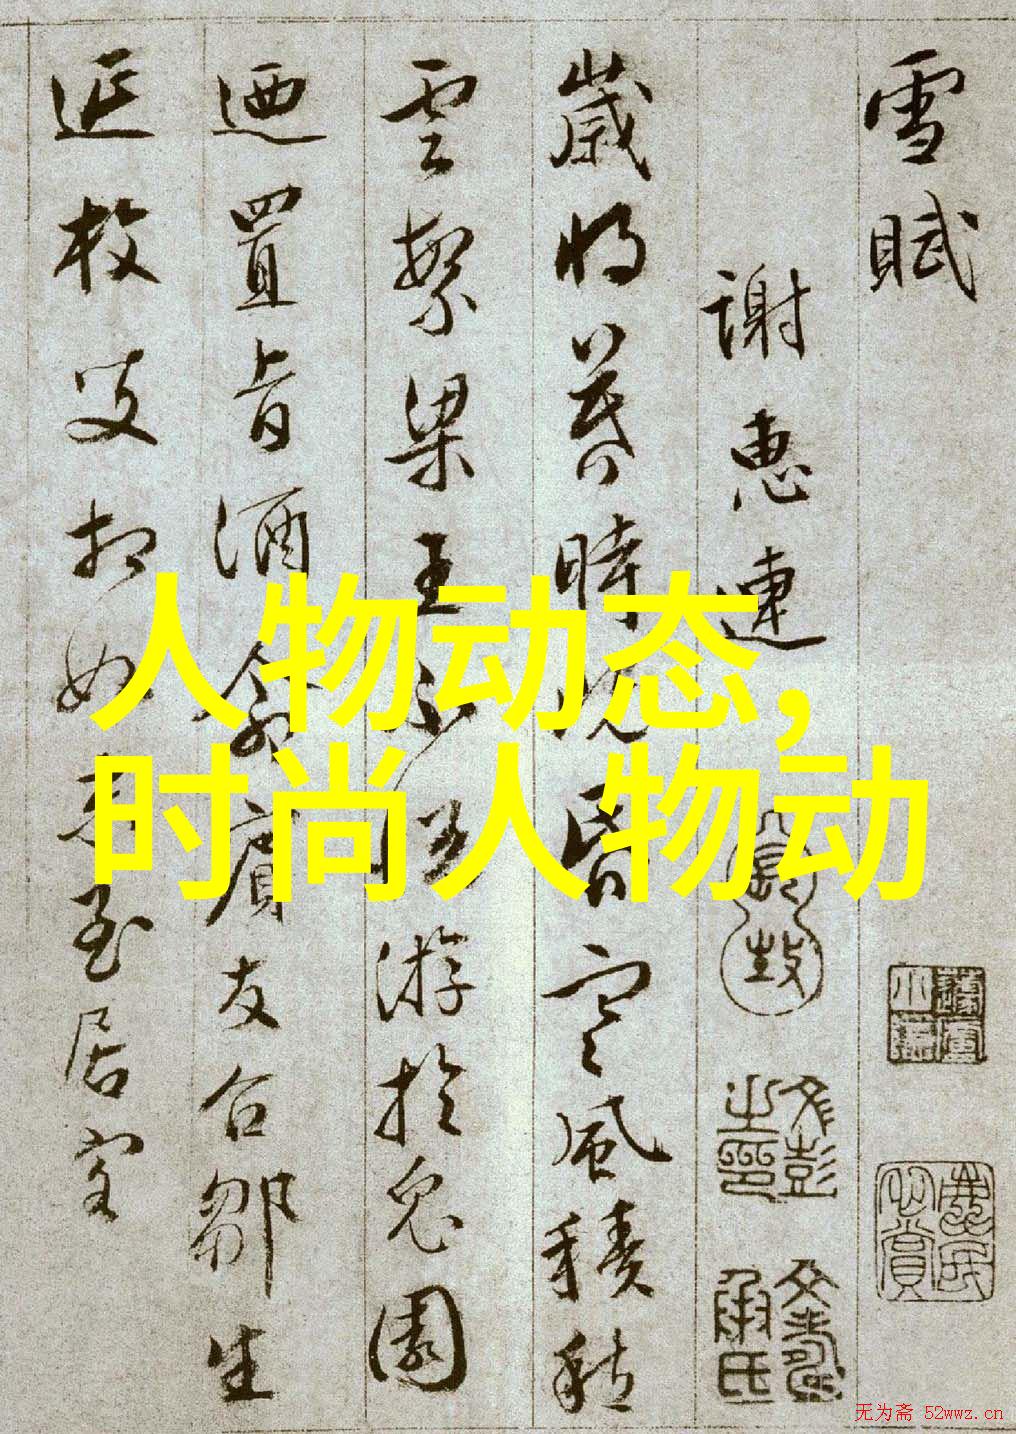 雪賦
謝惠連
歲將暮時既昏寒風積愁
雲繁梁王不悅游於兔園
迺置旨酒命賓友召鄒生
延枚叟相如末至居客
人物动态,
时尚人物动
文彭之印
文壽承氏
无为斋 52wwz.cn